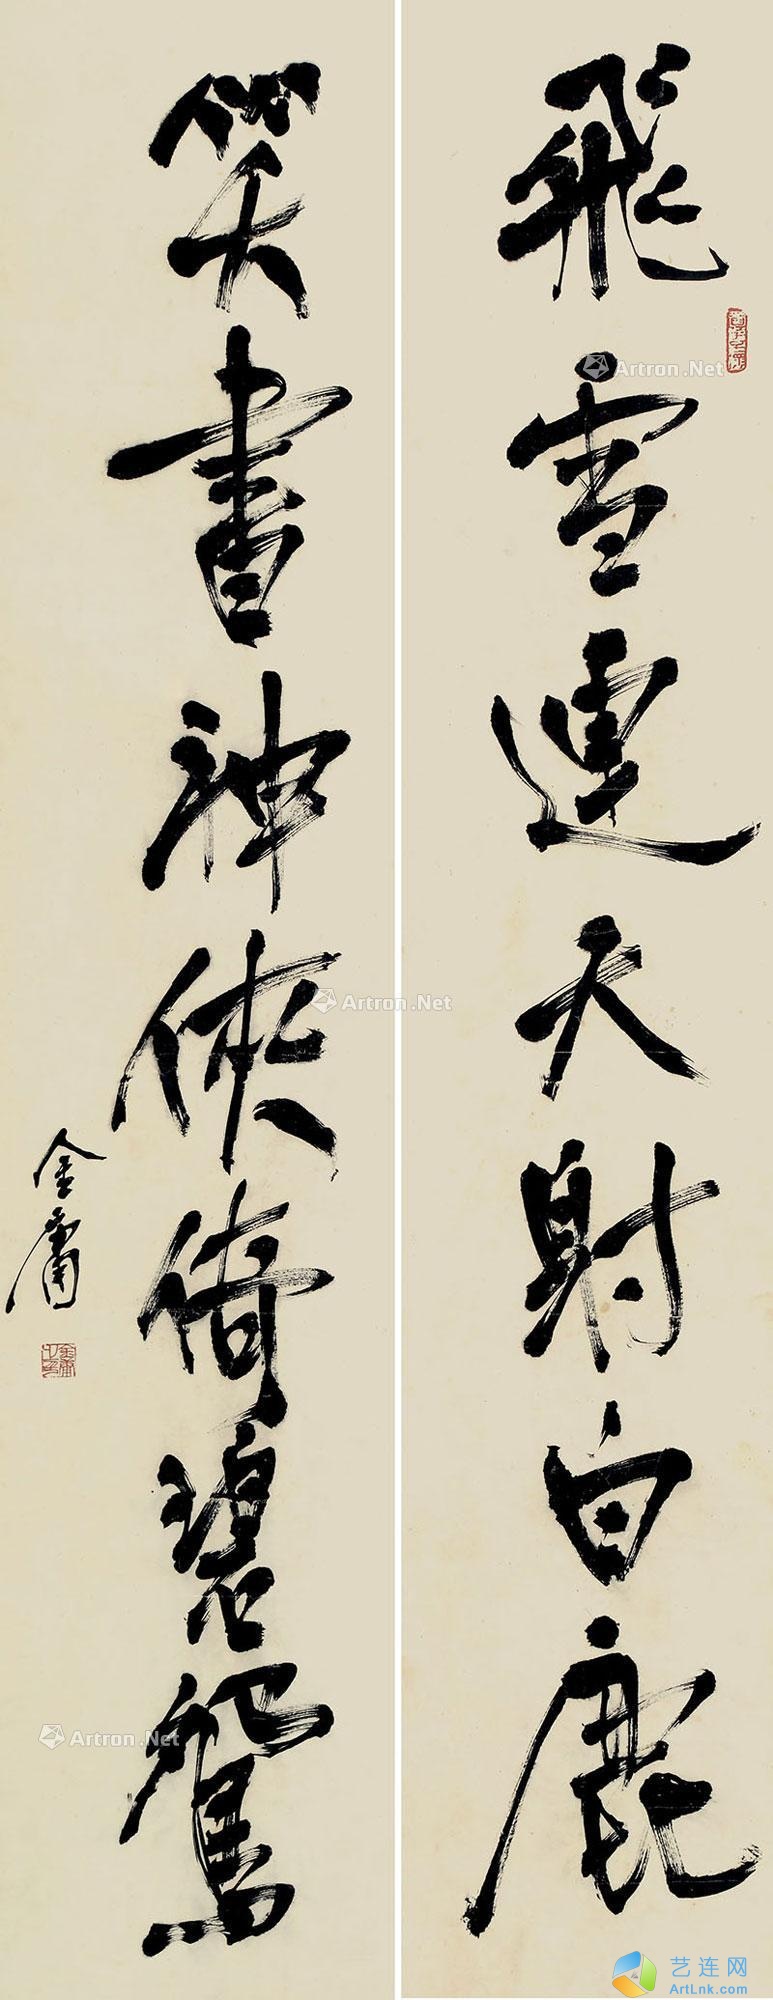 飛雪連天射白鹿
笑書神俠倚碧鴛
金庸
Artron.Net
Artron.Net
Artron.Net
艺连网
ArtLnk.com